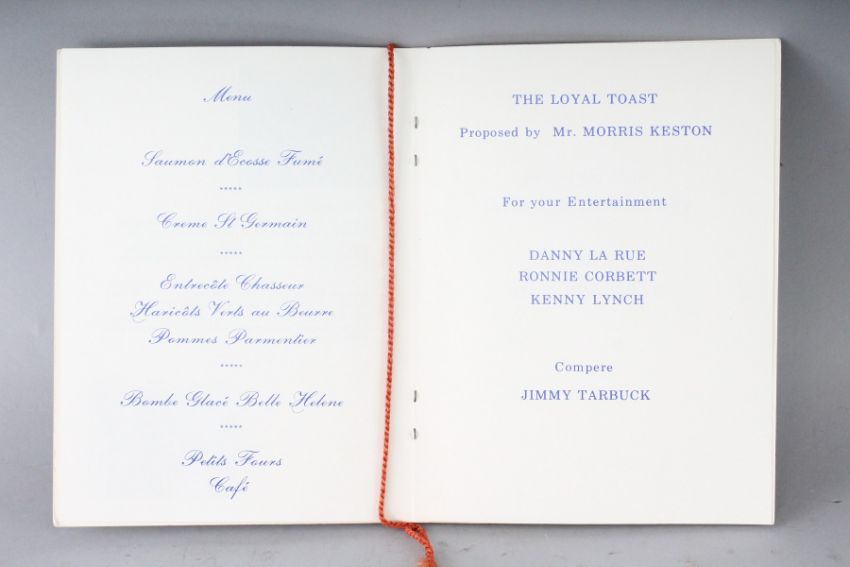 Menu
Saumon d'Ecosse Fumé
*****
Creme St Germain
*****
Entrecôte Chasseur
Haricôts Verts au Beurre
Pommes Parmentier
*****
Bombe Glacé Belle Helene
*****
Petits Fours
Café
THE LOYAL TOAST
Proposed by Mr. MORRIS KESTON
For your Entertainment
DANNY LA RUE
RONNIE CORBETT
KENNY LYNCH
Compere
JIMMY TARBUCK